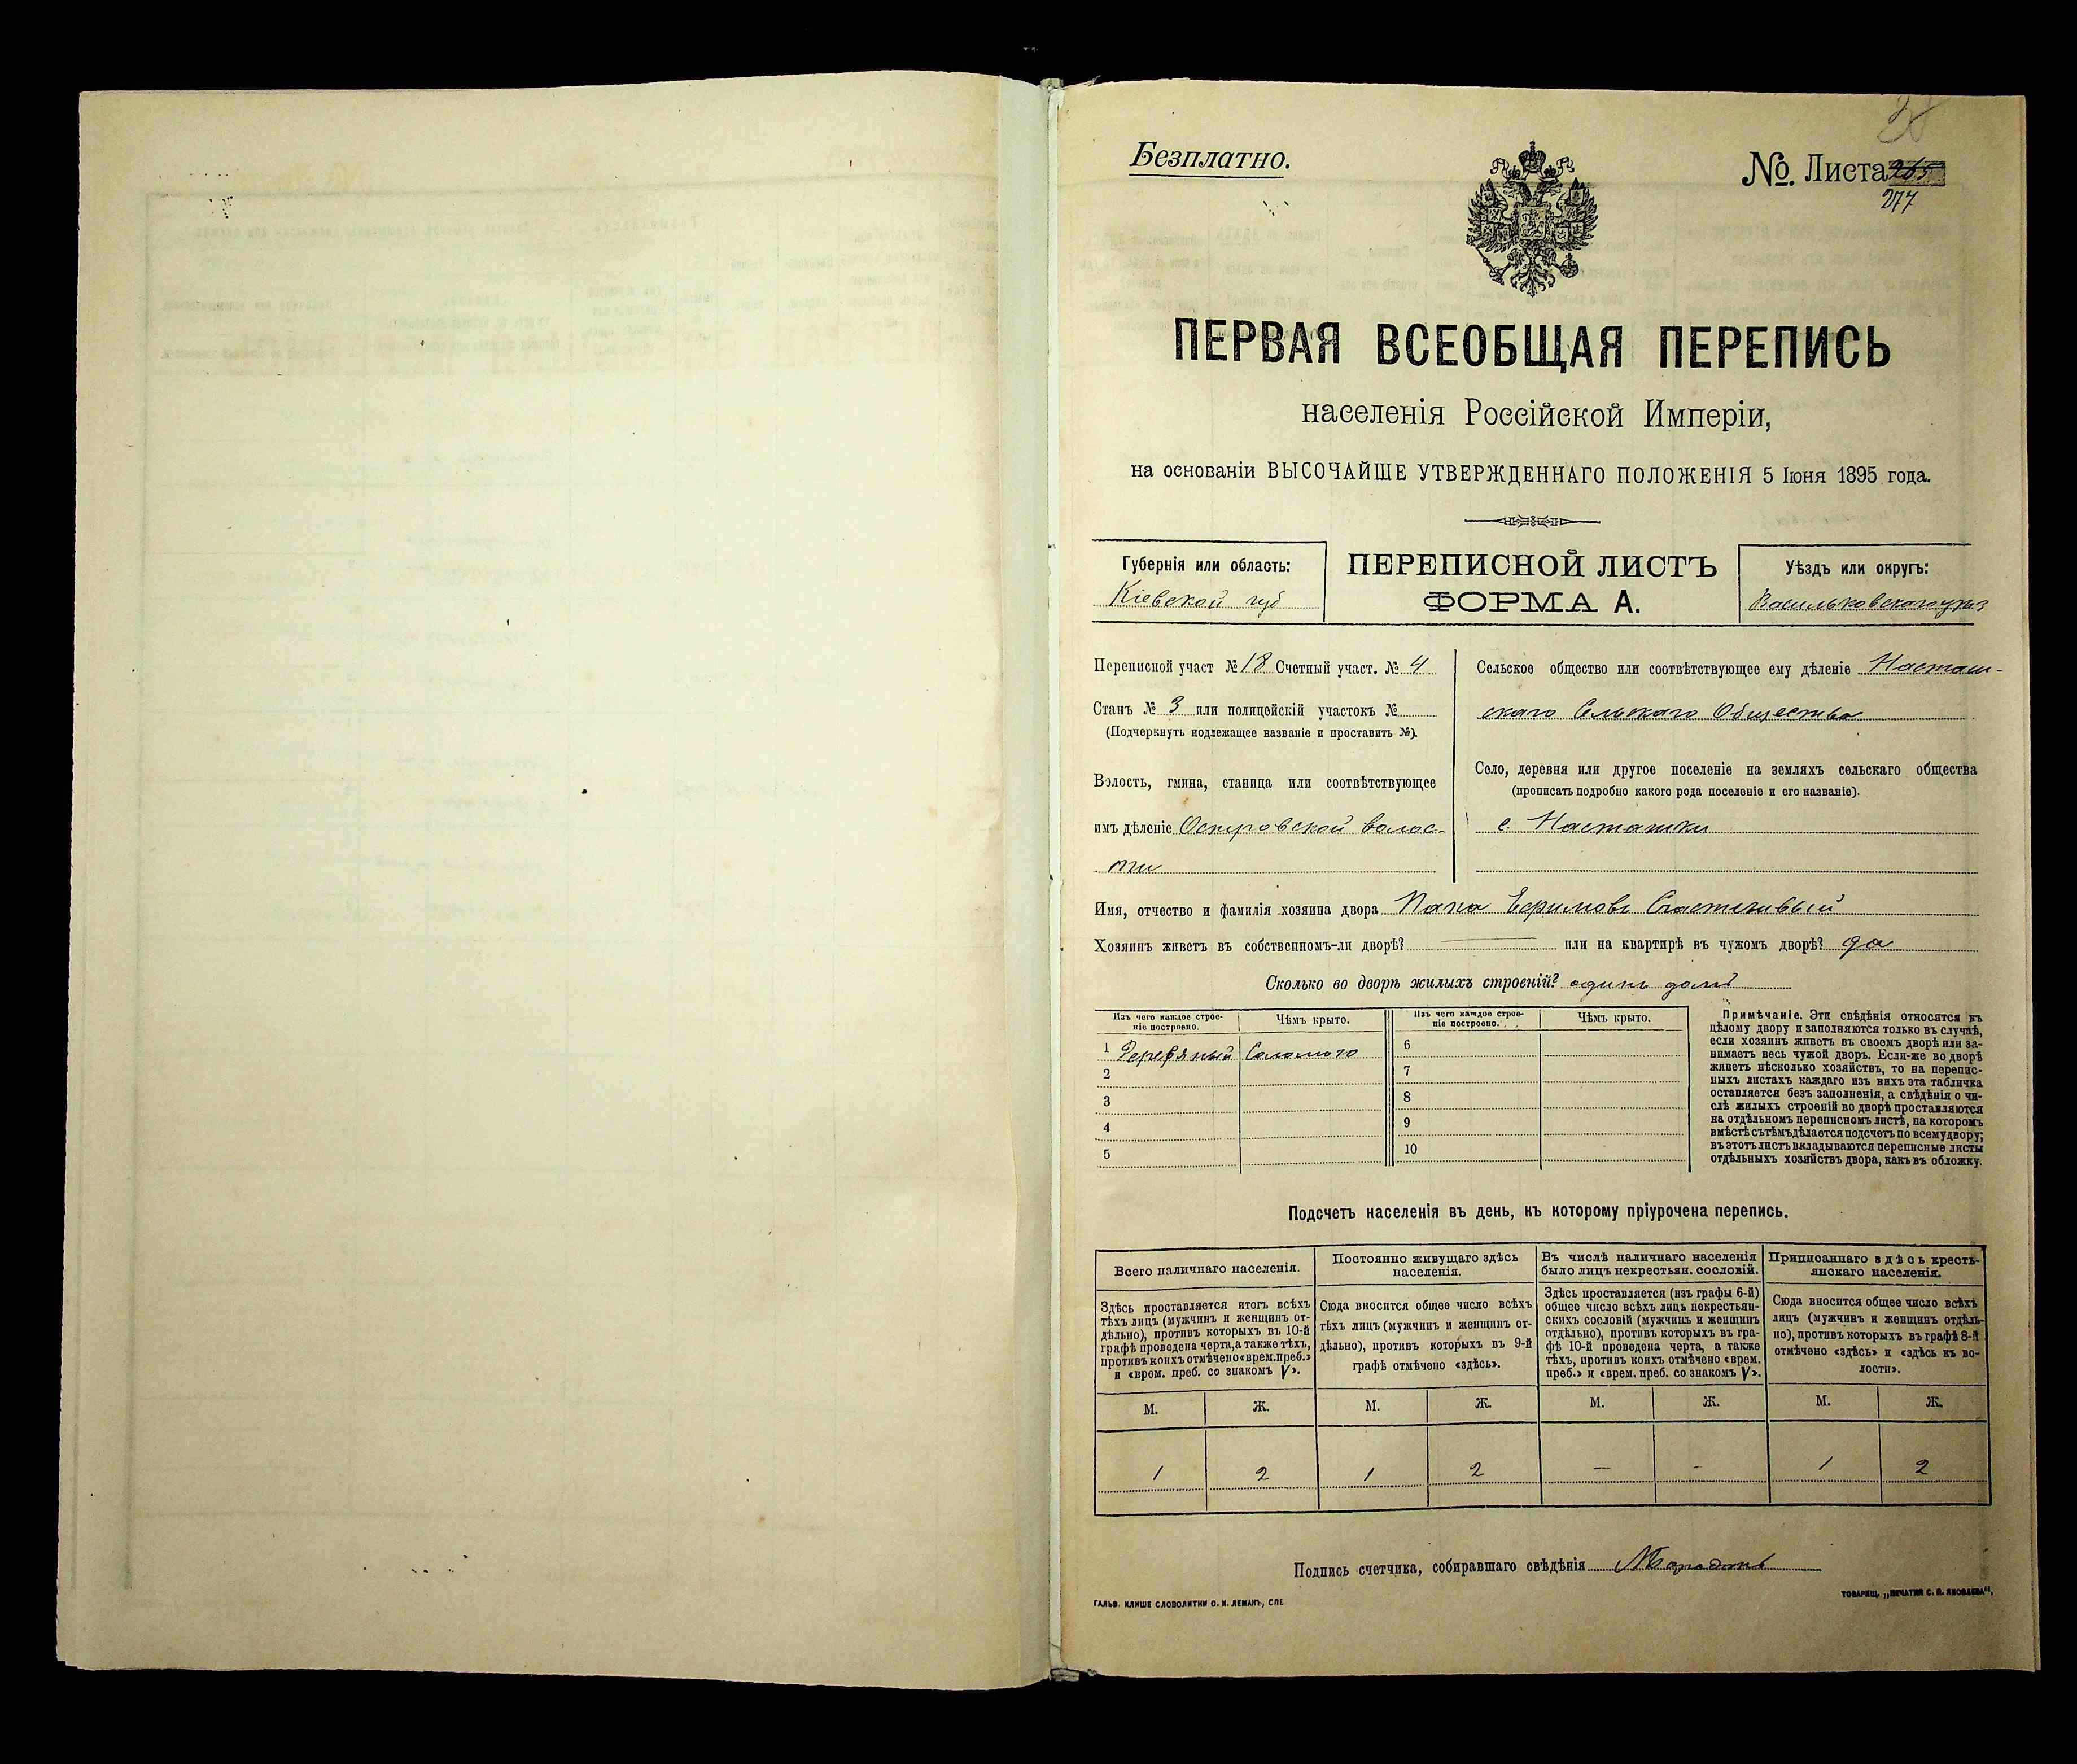 Безплатно.
№. Листа 265
277
ПЕРВАЯ ВСЕОБЩАЯ ПЕРЕПИСЬ
населенія Россійской Имперіи,
на основаніи ВЫСОЧАЙШЕ УТВЕРЖДЕННАГО ПОЛОЖЕНІЯ 5 Іюня 1895 года.
Губернія или область:
Кіевской губ
ПЕРЕПИСНОЙ ЛИСТЪ
ФОРМА А.
Уѣздъ или округъ:
Васильковскаго
Переписной участ № 18 Счетный участ. № 4
Станъ № 3 или полицейскій участокъ №
(Подчеркнуть подлежащее названіе и проставить №).
Волость, гмина, станица или соотвѣтствующее
имъ дѣленіе Островской волос-
ти
Сельское общество или соотвѣтствующее ему дѣленіе Насташ-
скаго Сельскаго Общества
Село, деревня или другое поселеніе на земляхъ сельскаго общества
(прописать подробно какого рода поселеніе и его названіе).
с. Насташки
Имя, отчество и фамилія хозяина двора
Хозяинъ живетъ въ собственномъ-ли дворѣ? — или на квартирѣ въ чужомъ дворѣ? да
Сколько во дворѣ жилыхъ строеній? одинъ домъ
Изъ чего каждое строе-
ніе построено.
Чѣмъ крыто.
1 Деревяный Соломою
2
3
4
5
Изъ чего каждое строе-
ніе построено.
Чѣмъ крыто.
6
7
8
9
10
Примѣчаніе. Эти свѣдѣнія относятся къ
цѣлому двору и заполняются только въ случаѣ,
если хозяинъ живетъ въ своемъ дворѣ или за-
нимаетъ весь чужой дворъ. Если-же во дворѣ
живетъ нѣсколько хозяйствъ, то на перепис-
ныхъ листахъ каждаго изъ нихъ эта табличка
оставляется безъ заполненія, а свѣдѣнія о чи-
слѣ жилыхъ строеній во дворѣ проставляются
на отдѣльномъ переписномъ листѣ, на которомъ
вмѣстѣ съ тѣмъ дѣлается подсчетъ по всему двору;
въ этотъ листъ вкладываются переписные листы
отдѣльныхъ хозяйствъ двора, какъ въ обложку.
Подсчетъ населенія въ день, къ которому пріурочена перепись.
Всего наличнаго населенія.
Здѣсь проставляется итогъ всѣхъ
тѣхъ лицъ (мужчинъ и женщинъ от-
дѣльно), противъ которыхъ въ 10-й
графѣ проведена черта, а также тѣхъ,
противъ коихъ отмѣчено «врем. преб.»
и «врем. преб. со знакомъ V».
Постоянно живущаго здѣсь
населенія.
Сюда вносится общее число всѣхъ
тѣхъ лицъ (мужчинъ и женщинъ от-
дѣльно), противъ которыхъ въ 9-й
графѣ отмѣчено «здѣсь».
Въ числѣ наличнаго населенія
было лицъ некрестьян. сословій.
Здѣсь проставляется (изъ графы 6-й)
общее число всѣхъ лицъ некрестьян-
скихъ сословій (мужчинъ и женщинъ
отдѣльно), противъ которыхъ въ гра-
фѣ 10-й проведена черта, а также
тѣхъ, противъ коихъ отмѣчено «врем.
преб.» и «врем. преб. со знакомъ V».
Приписаннаго здѣсь кресть-
янскаго населенія.
Сюда вносится общее число всѣхъ
лицъ (мужчинъ и женщинъ отдѣль-
но), противъ которыхъ въ графѣ 8-й
отмѣчено «здѣсь» и «здѣсь къ во-
лости».
М. Ж. М. Ж. М. Ж. М. Ж.
1 2 1 2 — — 1 2
Подпись счетчика, собиравшаго свѣдѣнія
ГАЛЬВ. КЛИШЕ СЛОВОЛИТНИ О. И. ЛЕМАНЪ, СПБ.
ТОВАРИЩ. „ПЕЧАТНЯ С. П. ЯКОВЛЕВА“,